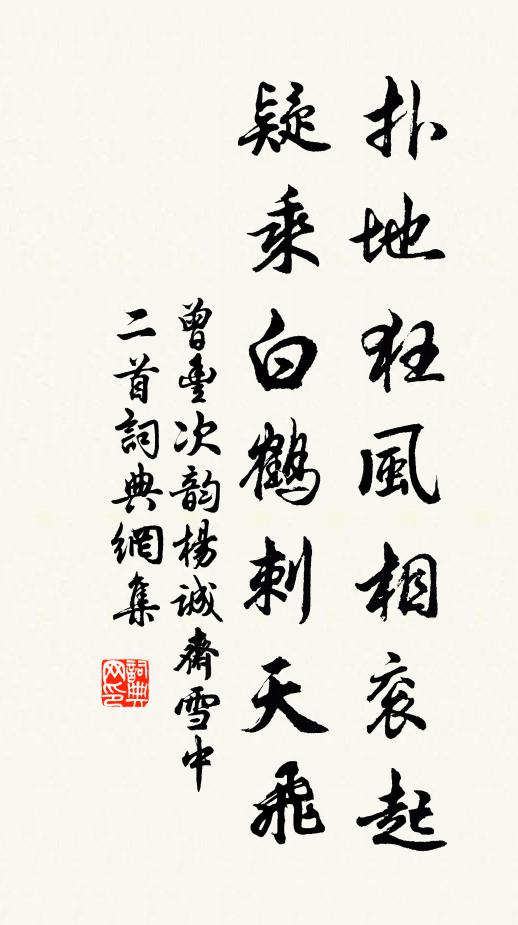 扑地狂風相衮起
疑乘白鶴刺天飛
曾豐次韵楊誠齋雪中
二首詞典網集
詞典
网印